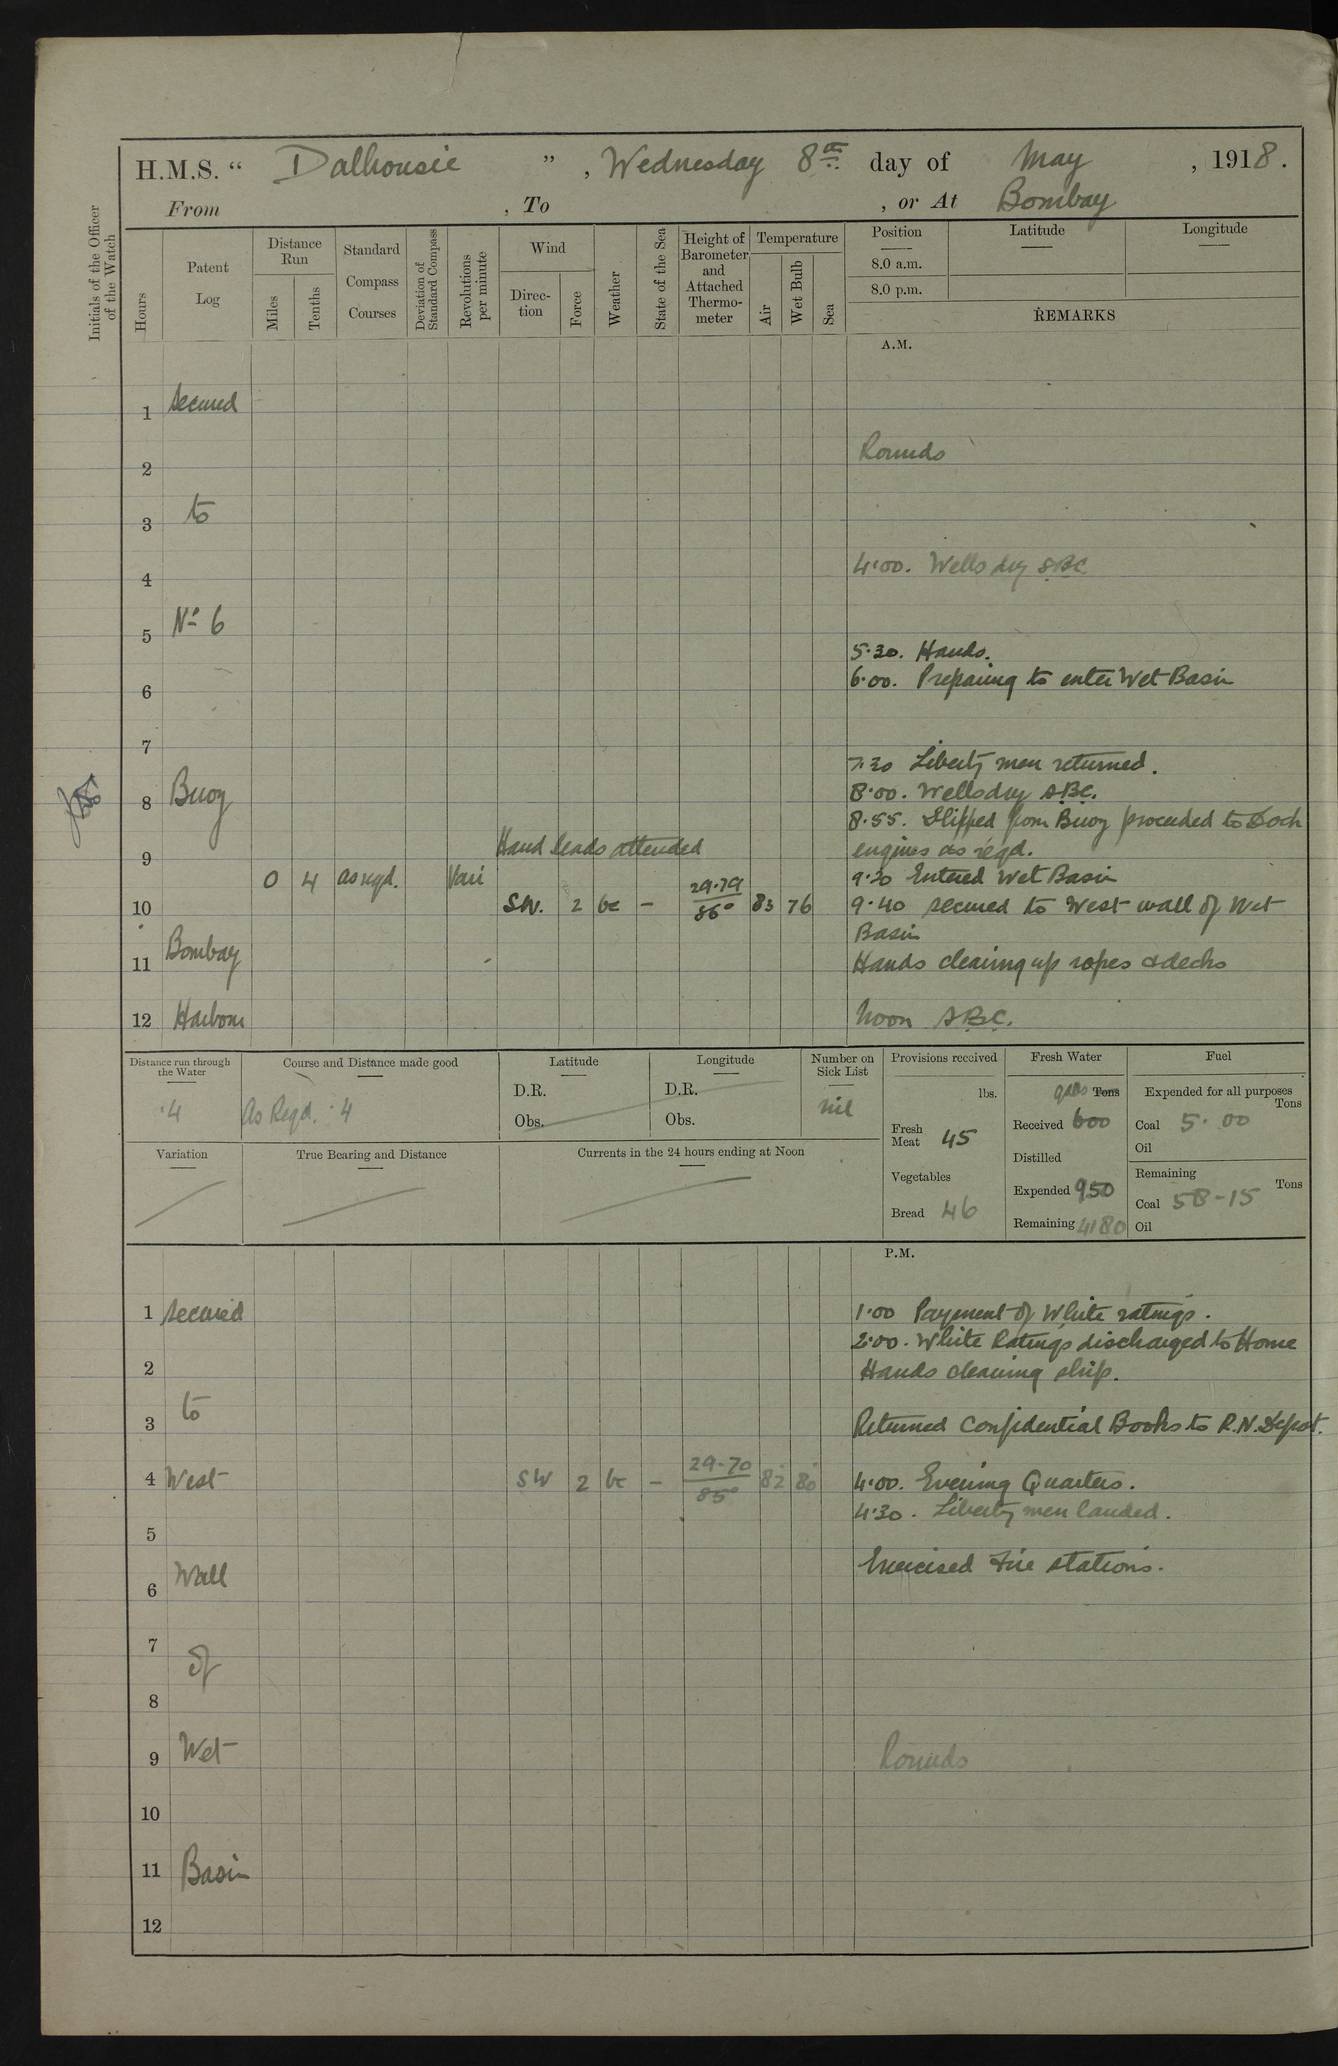 H.M.S. “ Dalhousie ” , Wednesday 8th day of May , 1918.
From , To , or At Bombay
Initials of the Officer of the Watch
Hours
Patent Log
Distance Run
Miles
Tenths
Standard Compass Courses
Deviation of Standard Compass
Revolutions per minute
Wind
Direction
Force
Weather
State of the Sea
Height of Barometer and Attached Thermometer
Temperature
Air
Wet Bulb
Sea
Position
8.0 a.m.
8.0 p.m.
Latitude
Longitude
REMARKS
A.M.
1 Secured
Rounds
2
3 to
4:00. Wells dry S.B.C.
4
5 No 6
5.30. Hands.
6.00. Preparing to enter Wet Basin
6
7
7.30 Liberty men returned.
8 Buoy 8.00. Wells dry S.B.C.
8.55. Slipped from Buoy proceeded to Dock
Hand leads attended engines as reqd.
9
0 4 as reqd. Vari 9.30 Entered Wet Basin
10 SW. 2 bc – 29.79 86° 83 76 9.40 secured to West wall of Wet
Basin
11 Bombay Hands clearing up ropes & decks
12 Harbour Noon S.B.C.
Distance run through the Water
.4
Course and Distance made good
As Reqd. .4
Latitude
D.R.
Obs.
Longitude
D.R.
Obs.
Number on Sick List
nil
Provisions received
lbs.
Fresh Meat 45
Vegetables
Bread 46
Fresh Water
galls Tons
Received 600
Distilled
Expended 950
Remaining 4180
Fuel
Expended for all purposes
Tons
Coal 5.00
Oil
Remaining
Tons
Coal 58-15
Oil
Variation
True Bearing and Distance
Currents in the 24 hours ending at Noon
P.M.
1 Secured 1.00 Payment of White ratings.
2.00. White Ratings discharged to Home
2 Hands cleaning ship.
3 to Returned Confidential Books to R.N. Depot.
4 West SW 2 bc – 29.70 85° 82 80 4.00. Evening Quarters.
4.30. Liberty men landed.
5
Exercised Fire stations.
6 Wall
7
of
8
9 Wet Rounds
10
11 Basin
12